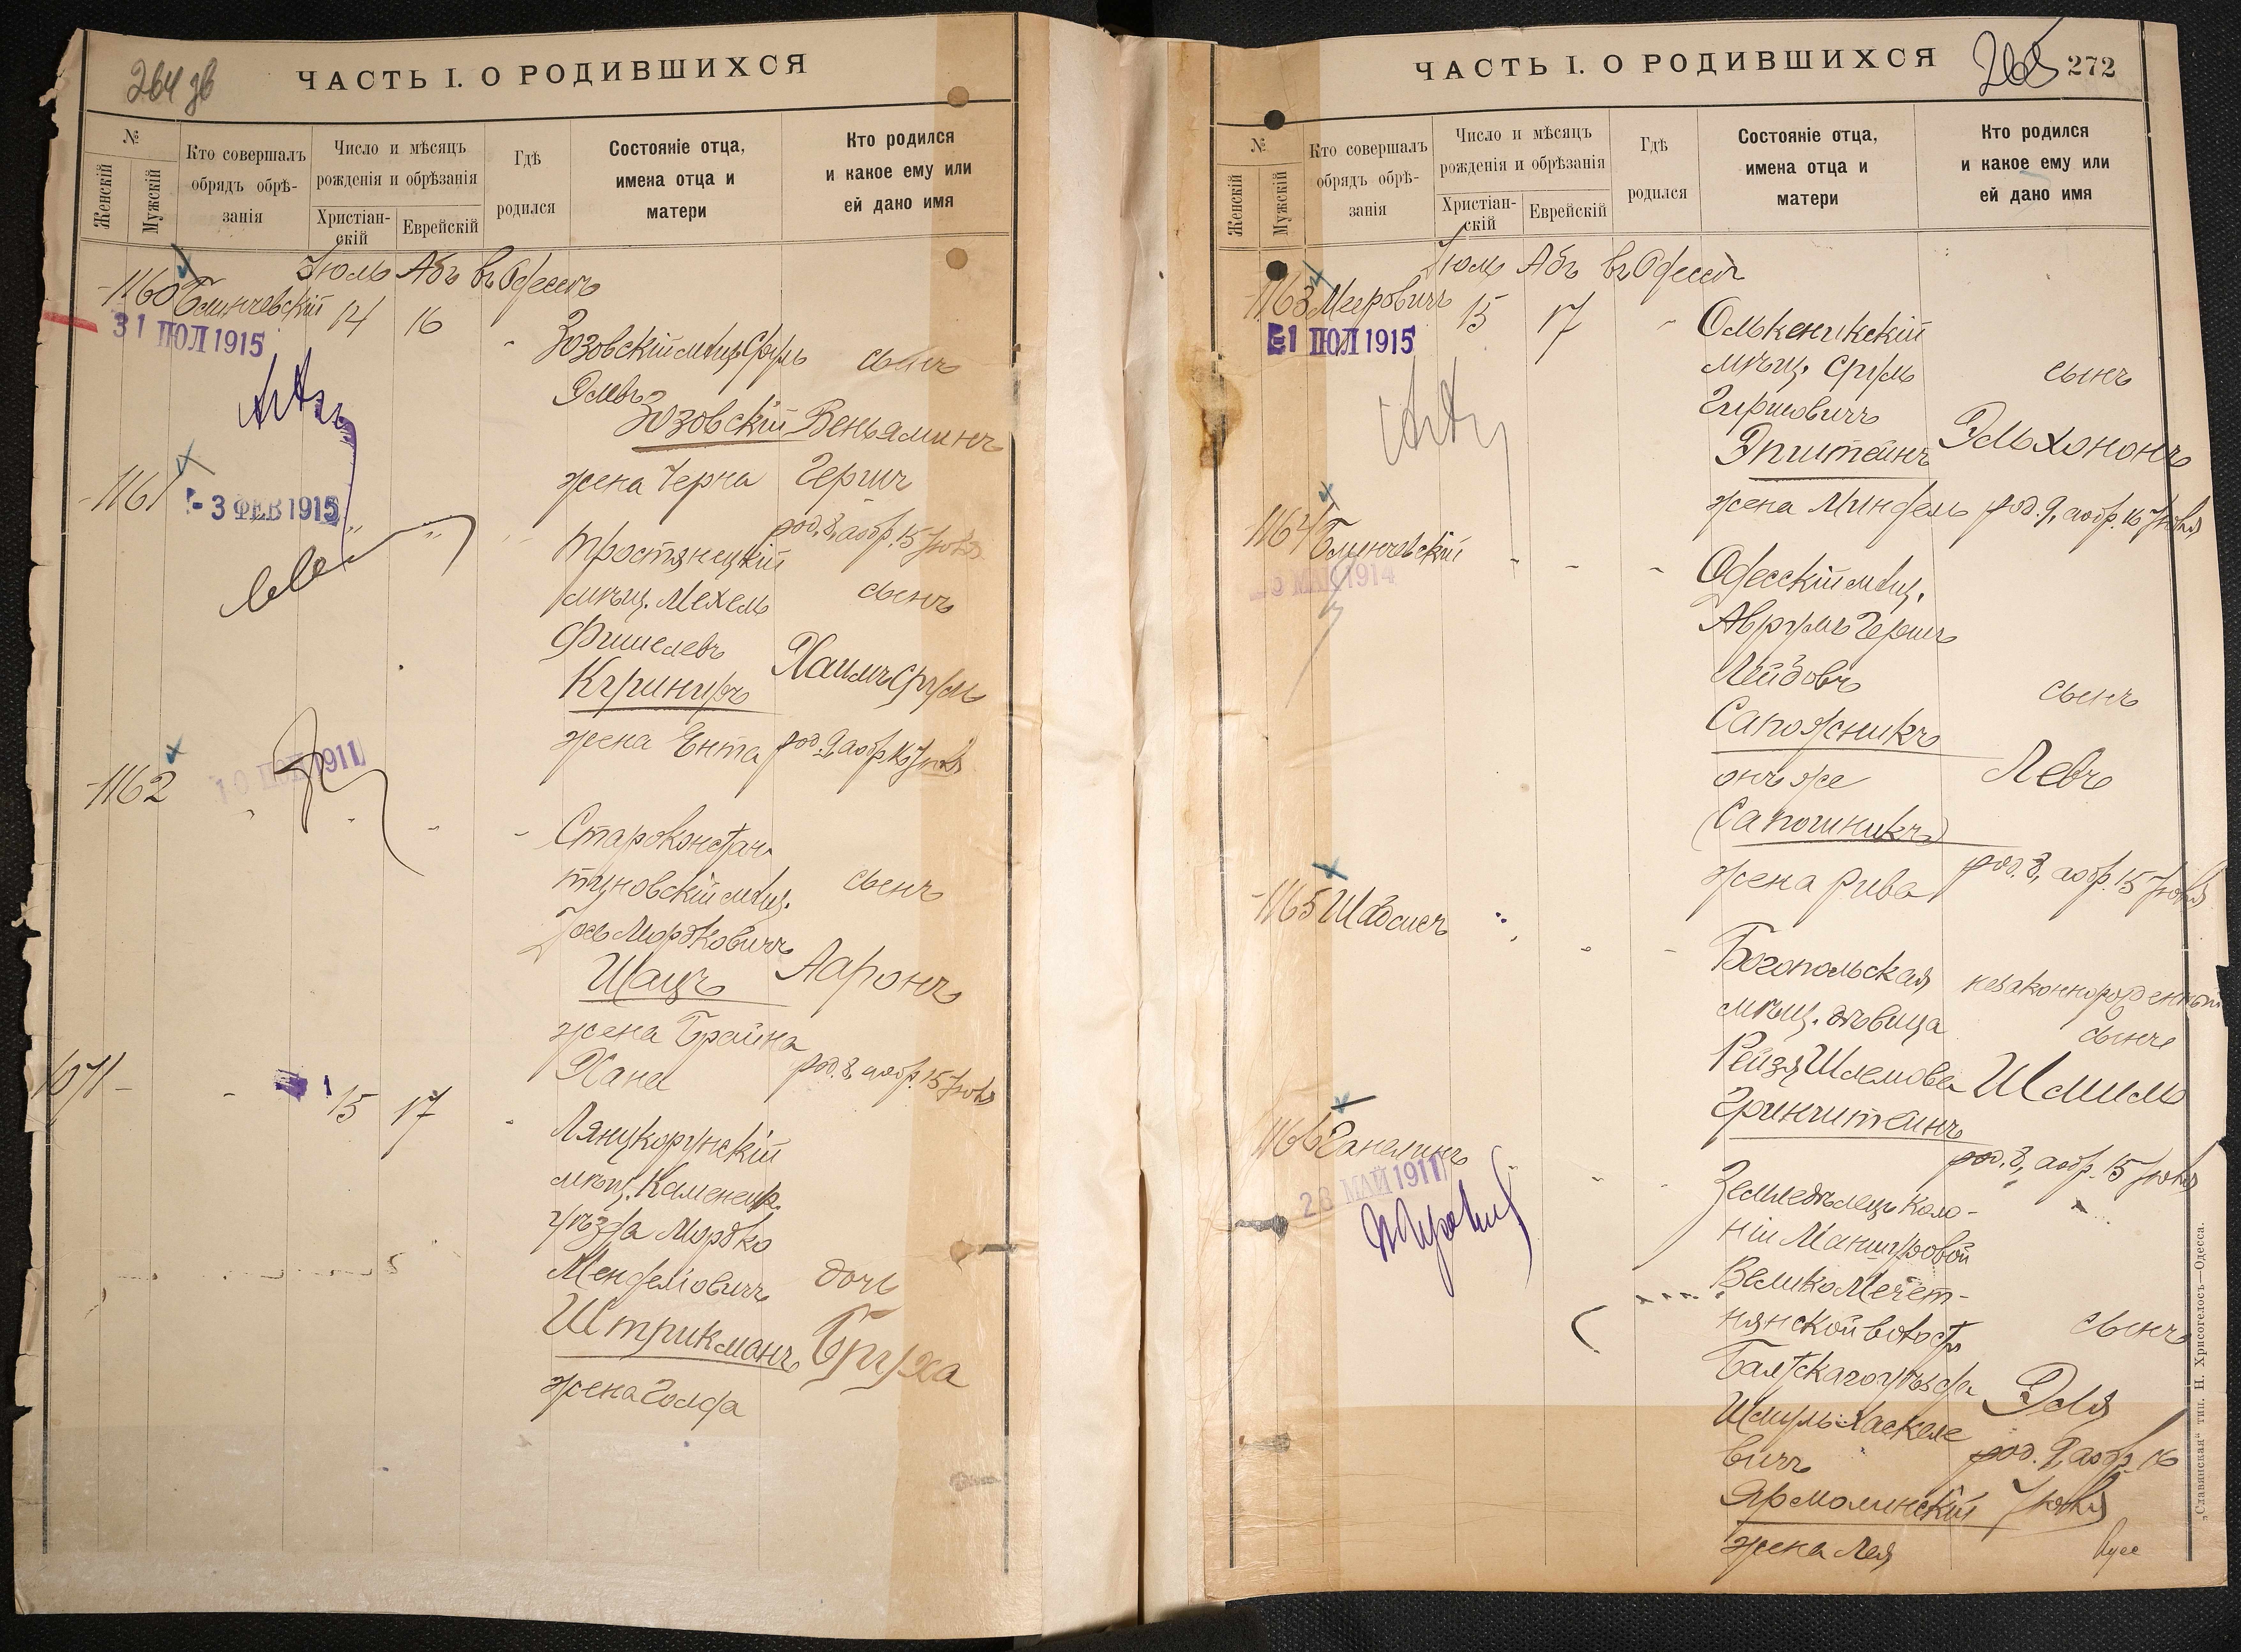 264 зв
ЧАСТЬ I. О РОДИВШИХСЯ
№
Женскій
Мужскій
Кто совершалъ
обрядъ обрѣ-
занія
Число и мѣсяцъ
рожденія и обрѣзанія
Христіан-
скій
Еврейскій
Гдѣ
родился
Состояніе отца,
имена отца и
матери
Кто родился
и какое ему или
ей дано имя
Іюль Абъ въ Одессѣ
1160 Блинчевскій 14 16
31 ІЮЛ 1915
Зозовскій мѣщ. Сруль
сынъ
Элевъ
Зозовскій
Веньяминъ
жена Черна
Гершъ
род. 8, а обр. 15 Іюля
1161
- 3 ФЕВ 1915
Тростянецкій
мѣщ. Мехель
сынъ
Фишелевъ
Хаимъ Сруль
жена Ента
род. 9, а обр. 16 Іюля
1162
10 1911
Староконстан-
тиновскій мѣщ.
сынъ
Іось Мордковичъ
Шацъ
Ааронъ
жена Брайна
Хана
род. 8, а обр. 15 Іюля
1071 15 17
Лянцкорунскій
мѣщ. Каменецк.
уѣзда Мордко
Менделіовичъ
дочь
Штрикманъ
Бруха
жена Голда
ЧАСТЬ I. О РОДИВШИХСЯ
265
272
№
Женскій
Мужскій
Кто совершалъ
обрядъ обрѣ-
занія
Число и мѣсяцъ
рожденія и обрѣзанія
Христіан-
скій
Еврейскій
Гдѣ
родился
Состояніе отца,
имена отца и
матери
Кто родился
и какое ему или
ей дано имя
Іюль Абъ въ Одессѣ
1163 Мееровичъ 15 17
31 ІЮЛ 1915
Олькеникскій
мѣщ. Сруль
сынъ
Гиршовичъ
Эпштейнъ
Эльхононъ
жена Миндель
род. 9, а обр. 16 Іюля
1164 Блинчевскій
МАЙ 1914
Одесскій мѣщ.
Аврумъ Гершъ
Лейбовъ
сынъ
Сапожникъ
онъ же
Левъ
(Сапошникъ)
жена Рива
род. 8, а обр. 15 Іюля
1165 Швосисъ
Богопольская
незаконнорожденный
мѣщ. дѣвица
сынъ
Рейзя Шлемова
Шмиль
Гринштейнъ
род. 8, а обр. 15 Іюля
1166 Ганелинъ
28 МАЙ 1911
Земледѣлецъ коло-
ніи Маншуровой
ВеликоМечет-
нянской волости
сынъ
Балтскаго уѣзда
Эля
Шмуль Хаскеле
вичъ
род. 9, а обр. 16
Ярмолинскій
Іюля
жена Лея
„Славянская“ тип. Н. Хрисогелосъ—Одесса.